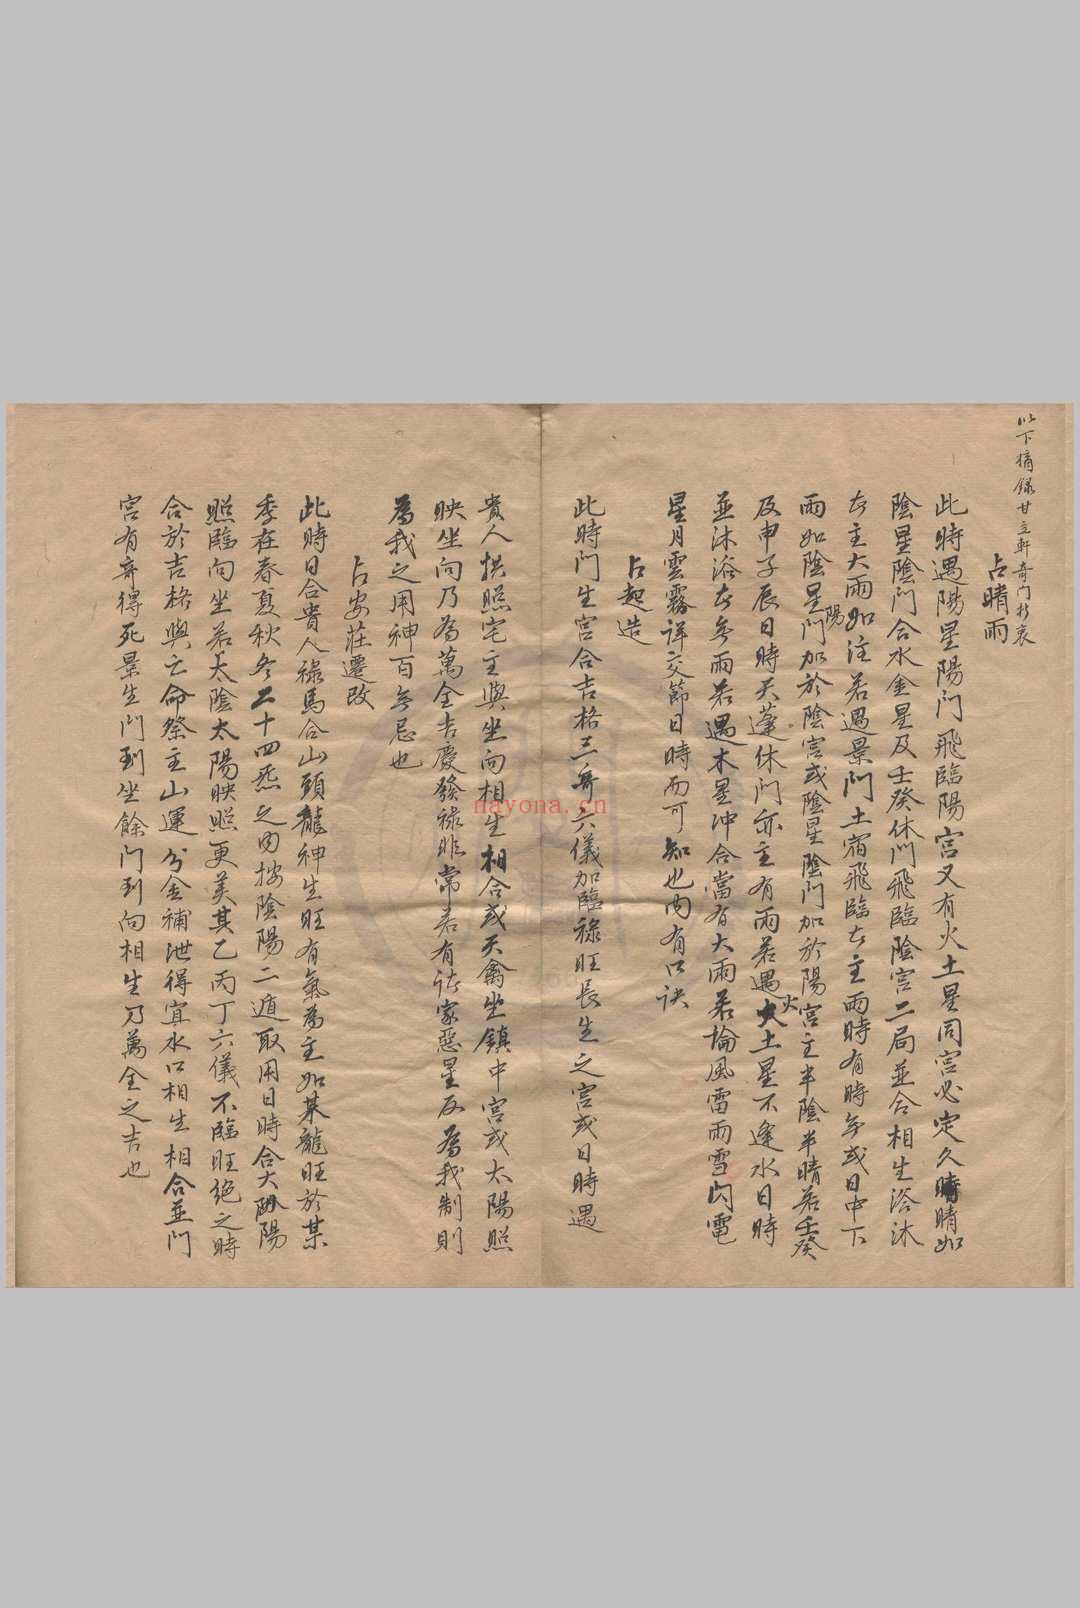 以下摘錄甘立軒奇门折衷
占晴雨
此時遇陽星陽门飛臨陽宫又有火土星同宫必定久晴晴如
陰星陰门合水金星及壬癸休门飛臨陰宫二局並合相生浴沐
者主大雨如注若遇景门土宿飛臨者主雨時有時无或日中下
雨如陰星陽门加於陰宫或陰星陰门加於陽宫主半陰半晴若壬癸
及申子辰日時天蓬休门亦主有雨若遇火土星不逢水日時
並沐浴者无雨若遇木星冲合當有大雨若論風雷雨雪閃電
星月雲霧詳交節日時而可知也内有口诀
占起造
此時门生宫合吉格三奇六儀加臨禄旺長生之宫或日時遇
貴人拱照宅主與坐向相生相合或天禽坐鎮中宫或太陽照
映坐向乃為萬全吉慶發禄非常若有诸家惡星反為我制則
為我之用神百无忌也
占安莊遷改
此時日合貴人禄馬合山頭龍神生旺有氣為主如某龍旺於某
季在春夏秋冬二十四炁之内按陰陽二遁取用日時合太陰陽
照臨向坐若太陰太陽映照更美其乙丙丁六儀不臨旺绝之時
合於吉格與亡命祭主山運分金補泄得宜水口相生相合並门
宫有奇得死景生门到坐餘门到向相生乃萬全之吉也
nayona.cn